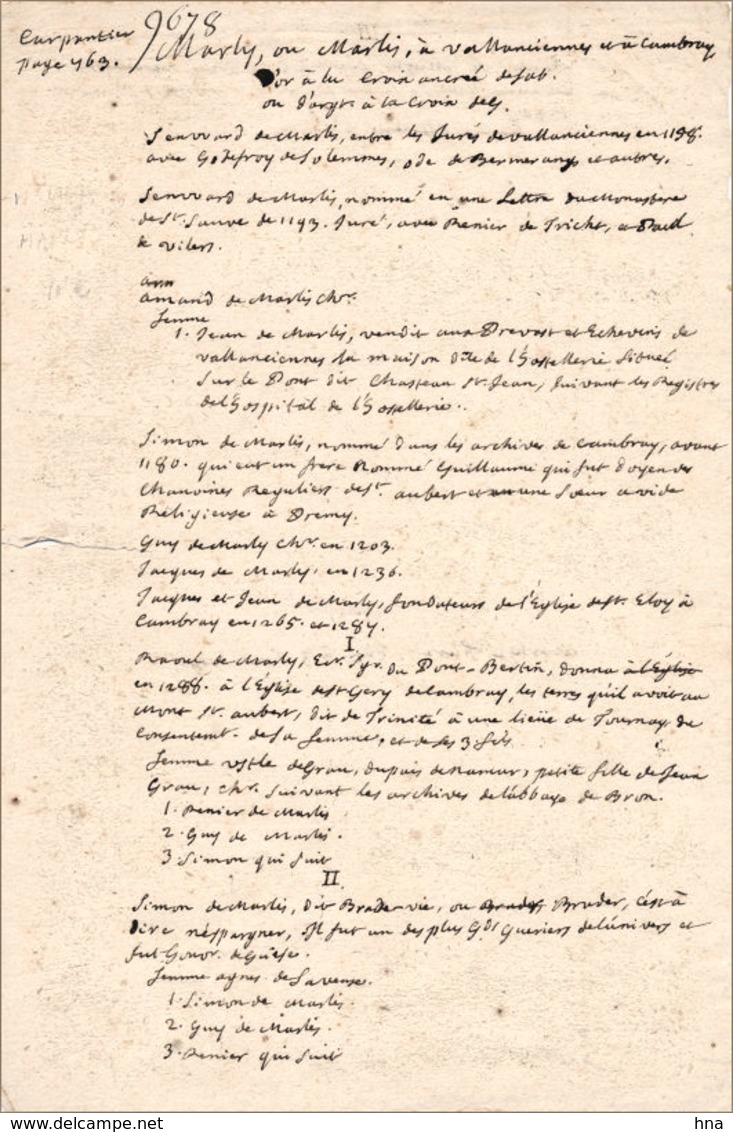 9678
Carpantier
page 763.
Marly, ou Marlis, à vallanciennes et à Cambray
D'or à la Croix ancreé de sab.
ou D'argt. à la Croix de G.
Senvvard de Marlis, entre les Jurés de vallanciennes en 1198.
avec Godefroy de Solemmes, ode de Bermerangs et autres.
Senvvard de Marlis, nommé en une Lettre du Monastere
de St. Sauve de 1193. Juré, avec Renier de Tricht, et
de vilers.
ann
amand de Marlis Chr.
femme
1. Jean de Marlis, vendit aux Prevost et Echevins de
vallanciennes la maison dite de l'hostellerie Situeé
Sur le Pont dit Chasteau St. Jean, suivant les Registres
de l'hospital de l'hostellerie.
Simon de Marlis, nommé dans les archives de Cambray, avant
1180. qui eut un frere Nommé Guillaume qui fut doyen des
Chanoines Reguliers de St. aubert et une Soeur avide
Religieuse à Premy.
Guy de Marly Chr. en 1203.
Jacques de Marly. en 1236.
Jacques et Jean de Marly, fondateurs de l'Eglise de St. Eloy à
Cambray en 1265. et 1284.
I
Raoul de Marly, Ecr. Sgr. du Pont-Bertin, donna à l'Eglise
en 1288. à l'Eglise de St Gery de Cambray, les terres qu'il avoit au
Mont St. aubert, dit de Trinité à une lieüe de Tournay du
Consentemt. de sa femme, et de ses 3 fils
femme de Grau, du pais de Namur, petite fille de Jean
Grau, Chr. suivant les archives de l'abbaye de Bron.
1. Renier de Marlis
2. Guy de Marlis.
3. Simon qui suit
II
Simon de Marlis, dit Brade-vie, ou Bruder, c'est à
dire n'espargner, Il fut un des plus Gds Gueriers de l'univers et
fut Gouvr. de Guise.
femme agnes de Saveuse.
1. Simon de Marlis.
2. Guy de Marlis.
3. Renier qui suit
delcampe.net
hna